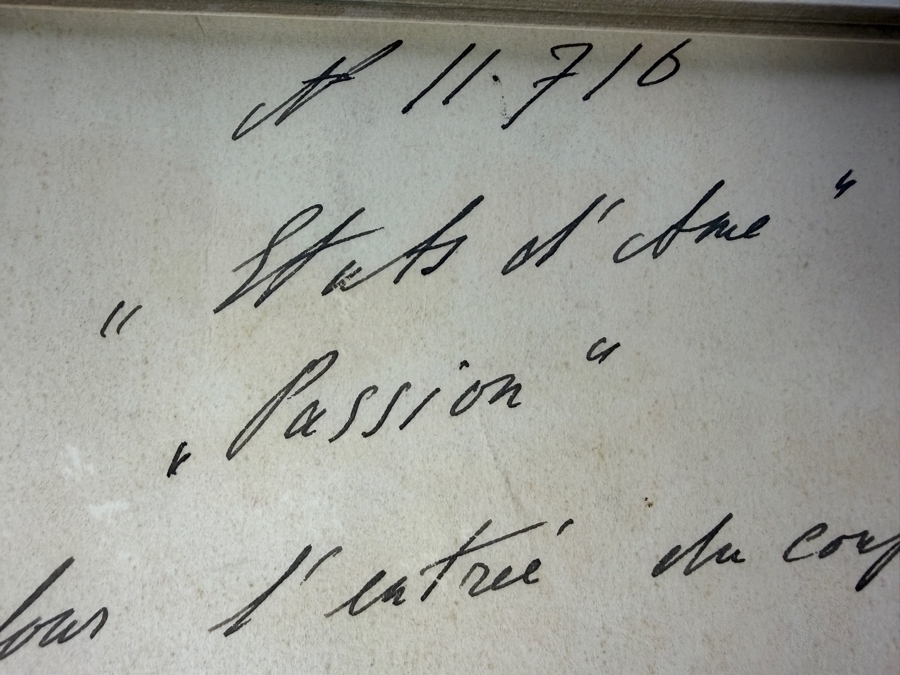 N 11.716
"Etats d'Ame"
"Passion"
l'entrée du